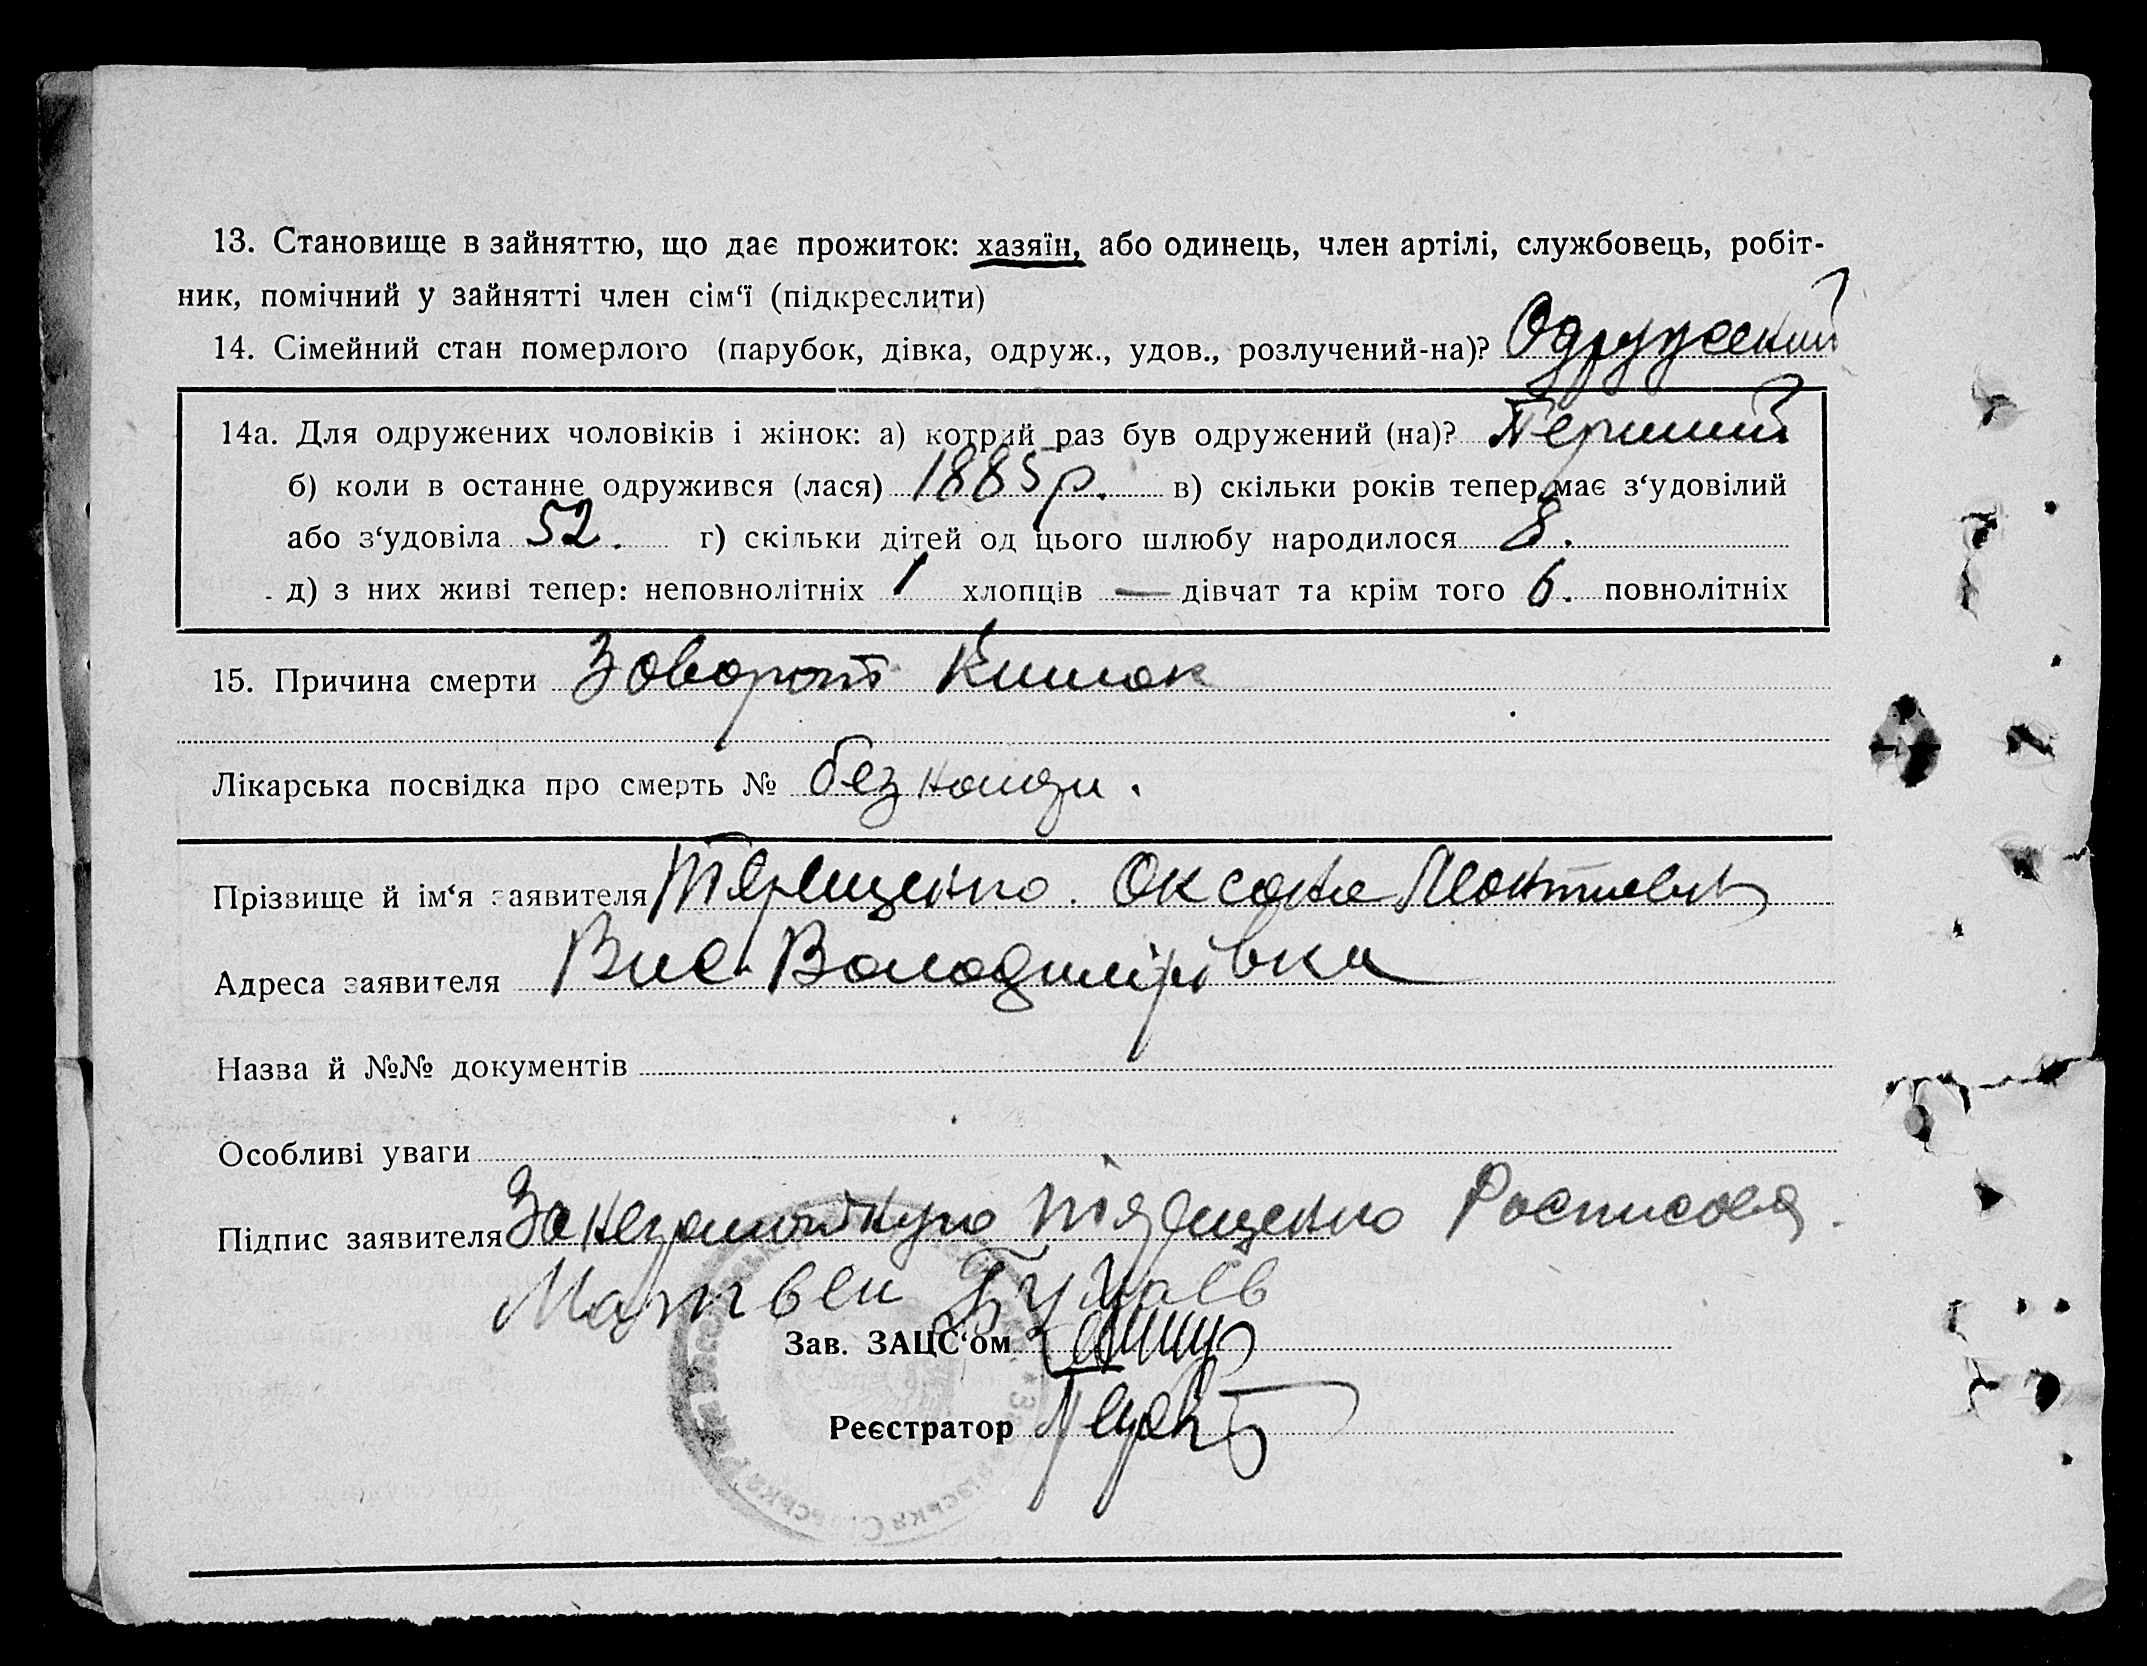 13. Становище в зайняттю, що дає прожиток: хазяїн, або одинець, член артілі, службовець, робіт-
ник, помічний у зайнятті член сім‘ї (підкреслити)
14. Сімейний стан померлого (парубок, дівка, одруж., удов., розлучений-на)? Одружений
14а. Для одружених чоловіків і жінок: а) котрий раз був одружений (на)? Перший
б) коли в останнє одружився (лася) 1885 р. в) скільки років тепер має з‘удовілий
або з‘удовіла 52. г) скільки дітей од цього шлюбу народилося 8.
д) з них живі тепер: неповнолітніх 1 хлопців — дівчат та крім того 6. повнолітніх
15. Причина смерти Заворот Кишок
Лікарська посвідка про смерть № без
Прізвище й ім‘я заявителя Терещенко. Оксана
Адреса заявителя Вис-Володимірівка
Назва й №№ документів
Особливі уваги
Підпис заявителя За неграмотную Терещенко Росписался.
Матвей
Зав. ЗАЦС‘ом
Реєстратор